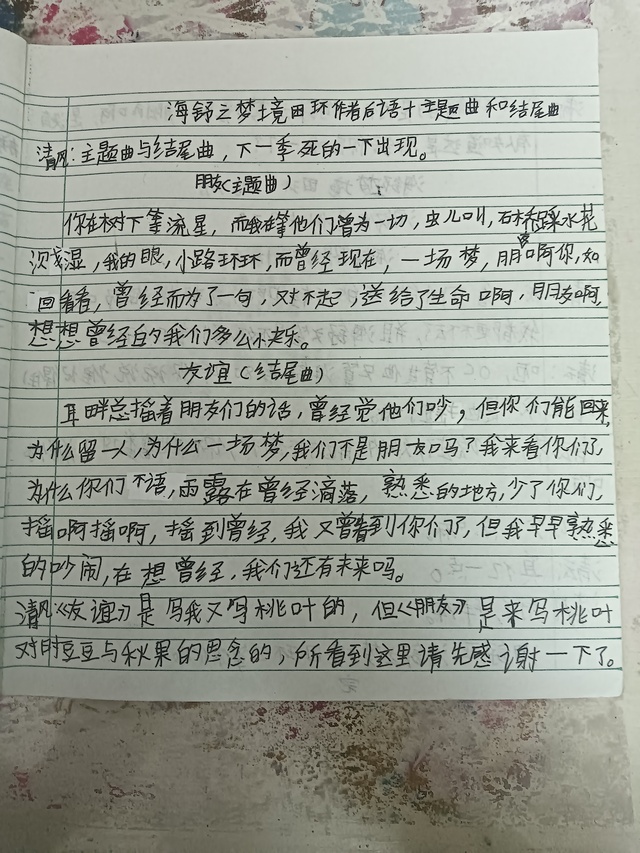 海舒之梦境田环作者后语十主题曲和结尾曲
清风:主题曲与结尾曲,下一季死的一下出现。
朋友(主题曲)
你在树下等流星,而我在等他们曾为一切,虫儿叫,石桥踩水花
溅湿,我的眼,小路环环,而曾经现在,一场梦,朋啊你,如
回看看,曾经而为了一句,对不起,送给了生命啊,朋友啊,
想,想曾经白的我们多么小乐。
友谊(结尾曲)
耳畔总摇着朋友们的话,曾经觉他们吵,但你们能回来,
为什么留一人,为什么一场梦,我们不是朋友吗?我来看你们了,
为什么你们不语,雨露在曾经滴落,熟悉的地方,少了你们,
摇啊摇啊,摇到曾经,我又曾看到你们了,但我早早熟悉
的吵闹,在想曾经,我们还有未来吗。
清风《友谊》是写我又写桃叶的,但《朋友》是来写桃叶
对时豆豆与秋果的思念的,所看到这里请先感谢一下了。